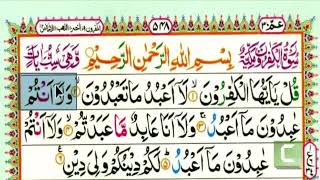 عمّ ٣٠ ٥٤٨
سُوْرَةُ الْكٰفِرُوْنَ مَكِّيَّةٌ بِسْمِ اللّٰهِ الرَّحْمٰنِ الرَّحِيْمِ وَهِيَ سِتُّ اٰيَاتٍ
قُلْ يٰٓاَيُّهَا الْكٰفِرُوْنَ ۙ۱ لَآ اَعْبُدُ مَا تَعْبُدُوْنَ ۙ۲ وَلَآ اَنْتُمْ
عٰبِدُوْنَ مَآ اَعْبُدُ ۚ۳ وَلَآ اَنَا عَابِدٌ مَّا عَبَدْتُّمْ ۙ۴ وَلَآ اَنْتُمْ
عٰبِدُوْنَ مَآ اَعْبُدُ ؕ۵ لَكُمْ دِيْنُكُمْ وَلِيَ دِيْنِ ۶